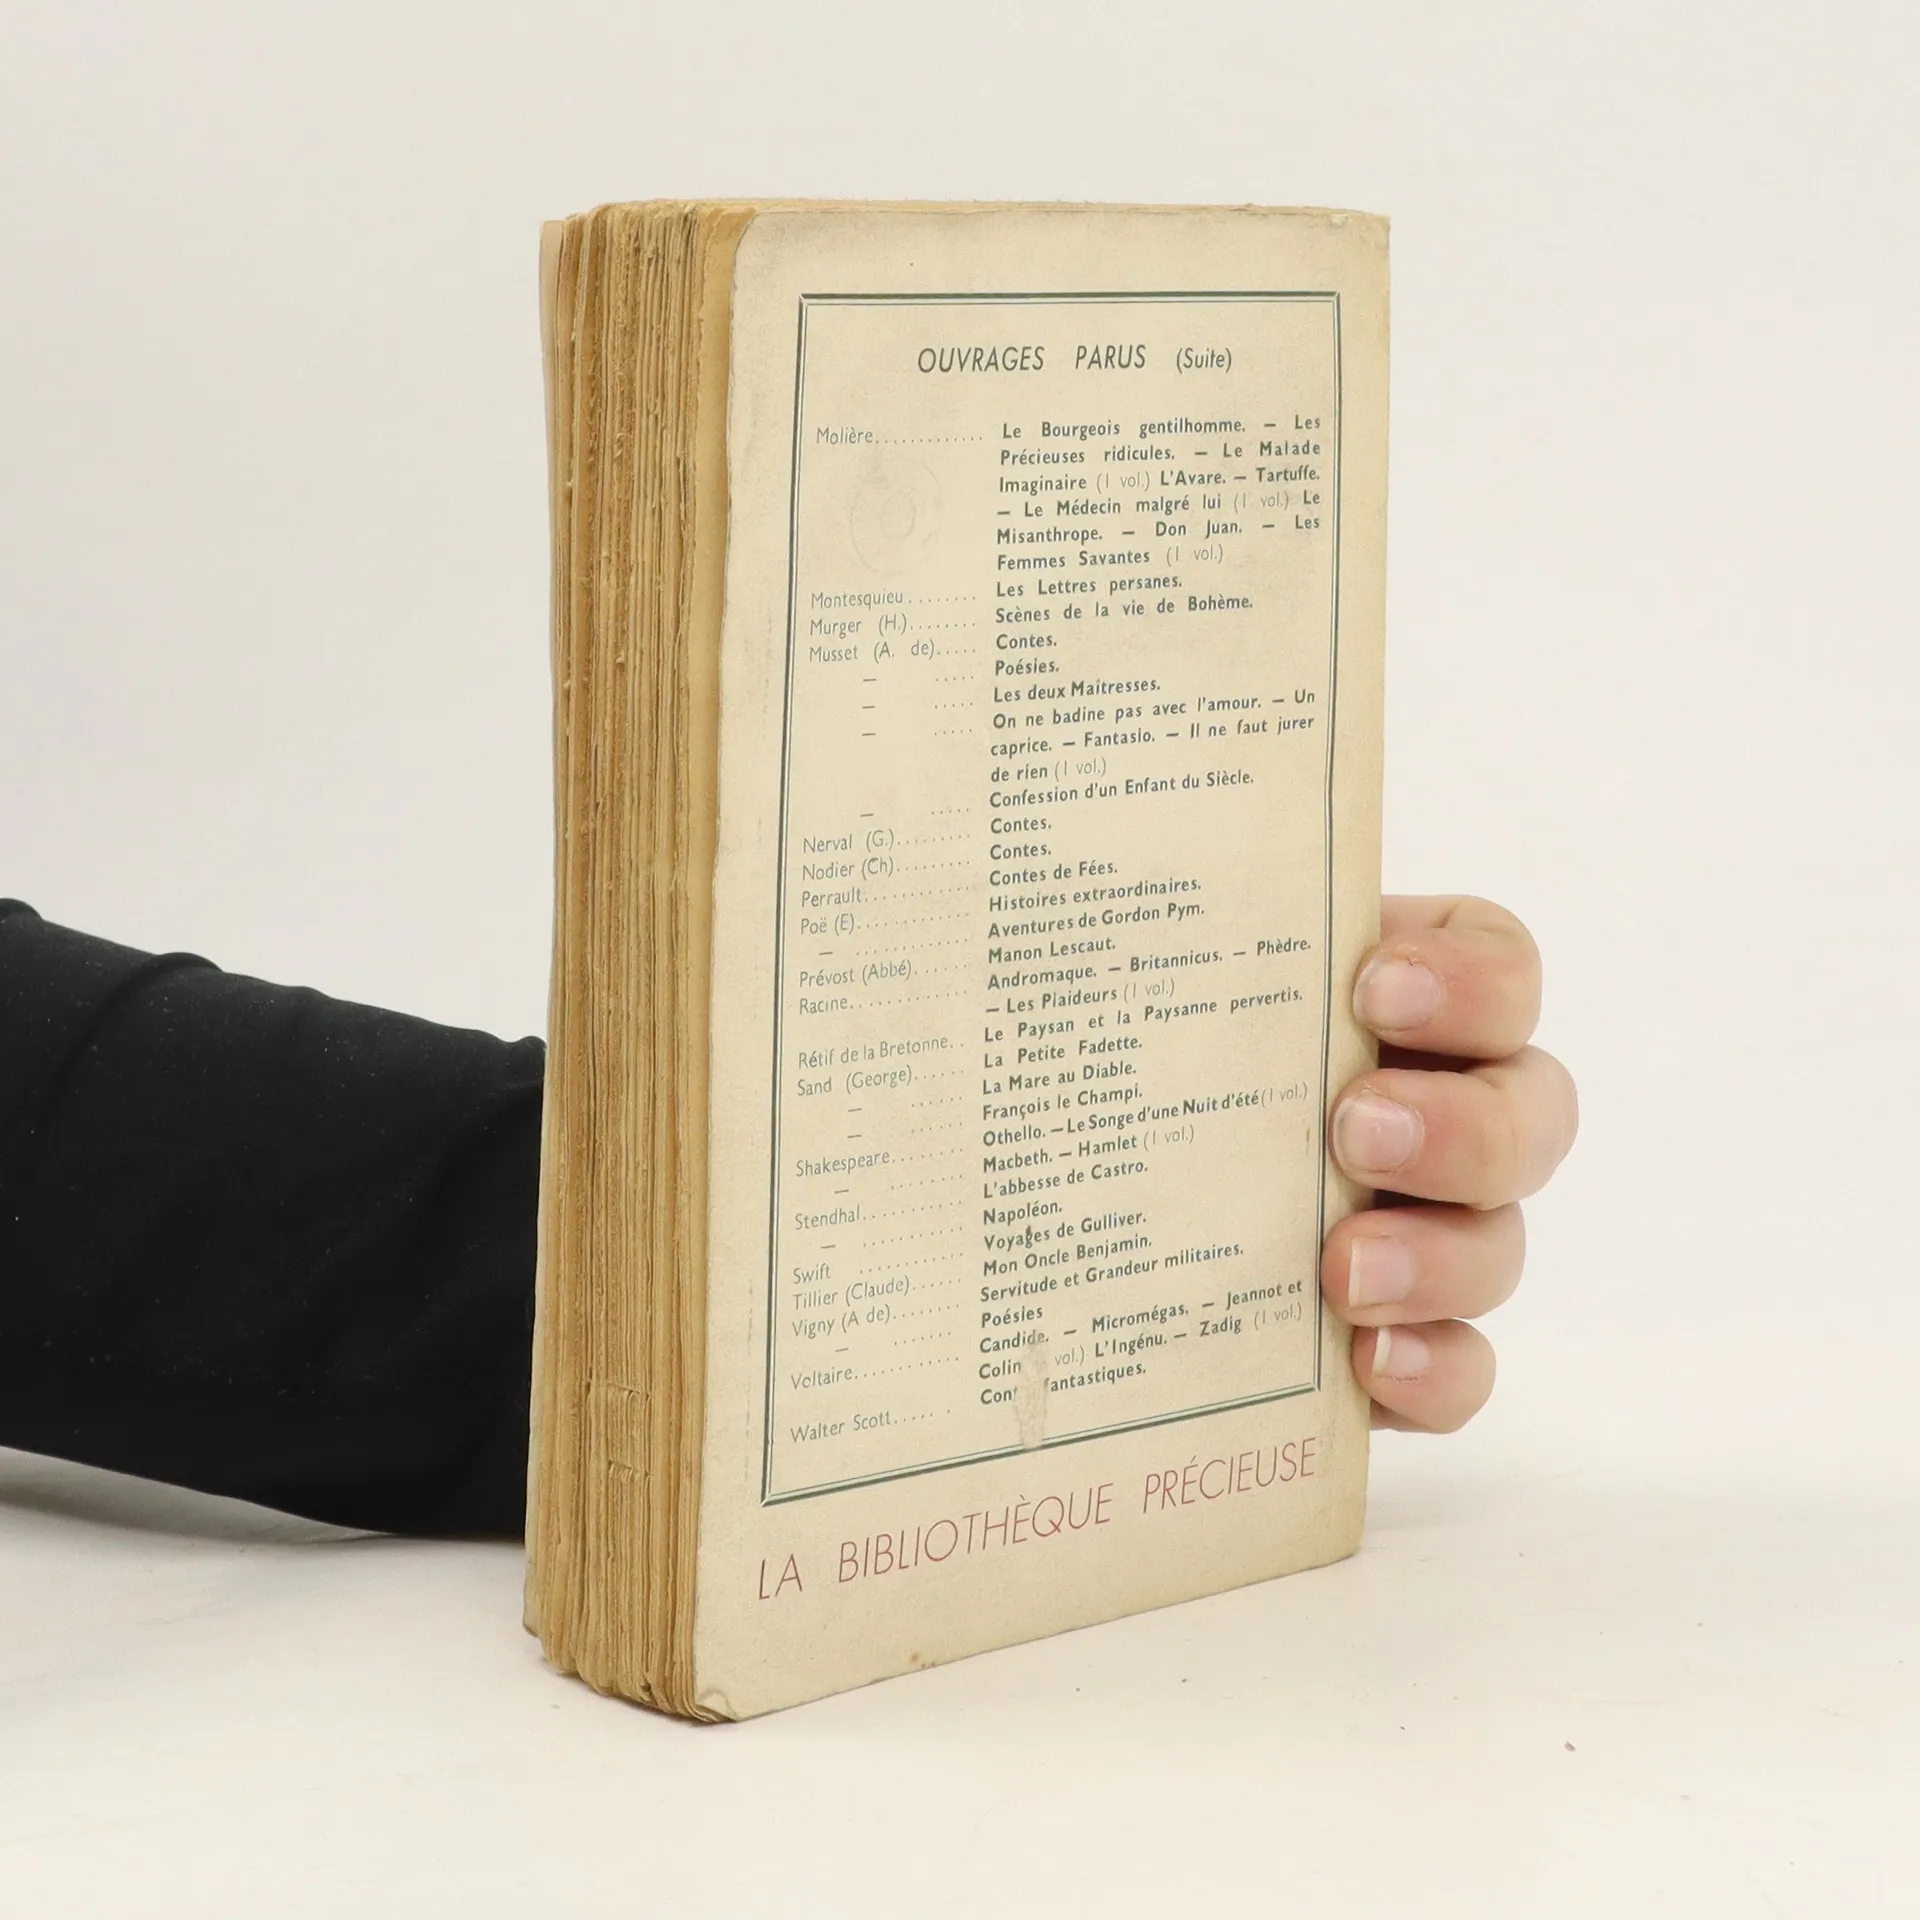 OUVRAGES PARUS (Suite)
Molière............. Le Bourgeois gentilhomme. — Les
Précieuses ridicules. — Le Malade
Imaginaire (1 vol.) L'Avare. — Tartuffe.
— Le Médecin malgré lui (1 vol.) Le
Misanthrope. — Don Juan. — Les
Femmes Savantes (1 vol.)
Montesquieu........ Les Lettres persanes.
Murger (H.)........ Scènes de la vie de Bohème.
Musset (A. de)..... Contes.
— ..... Poésies.
— ..... Les deux Maîtresses.
— ..... On ne badine pas avec l'amour. — Un
caprice. — Fantasio. — Il ne faut jurer
de rien (1 vol.)
— ..... Confession d'un Enfant du Siècle.
Nerval (G.)......... Contes.
Nodier (Ch)......... Contes.
Perrault............ Contes de Fées.
Poë (E)............. Histoires extraordinaires.
— ............. Aventures de Gordon Pym.
Prévost (Abbé)...... Manon Lescaut.
Racine............. Andromaque. — Britannicus. — Phèdre.
— Les Plaideurs (1 vol.)
Rétif de la Bretonne.. Le Paysan et la Paysanne pervertis.
Sand (George)...... La Petite Fadette.
— ...... La Mare au Diable.
— ...... François le Champi.
Shakespeare........ Othello. — Le Songe d'une Nuit d'été (1 vol.)
— ........ Macbeth. — Hamlet (1 vol.)
Stendhal........... L'abbesse de Castro.
— ........... Napoléon.
Swift ............ Voyages de Gulliver.
Tillier (Claude)...... Mon Oncle Benjamin.
Vigny (A de)........ Servitude et Grandeur militaires.
— ....... Poésies
Voltaire............ Candide. — Micromégas. — Jeannot et
Colin vol.) L'Ingénu. — Zadig (1 vol.)
Walter Scott..... . Cont fantastiques.
LA BIBLIOTHÈQUE PRÉCIEUSE